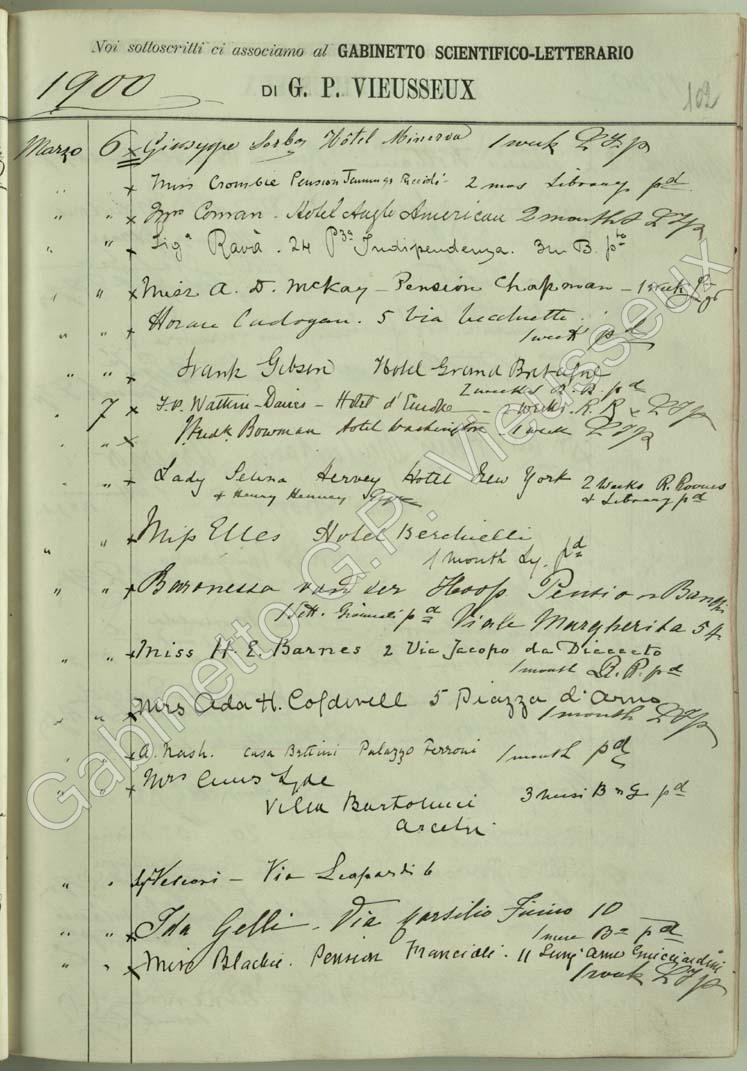 Noi sottoscritti ci associamo al GABINETTO SCIENTIFICO-LETTERARIO
1900 DI G. P. VIEUSSEUX 102
Marzo 6 x Giuseppe Hôtel Minerva 1 week
" " x Miss Crombie Pension Jennings Riccioli 2 mos Library pd
" " x Mrs Coman. Hotel Anglo American 2 months
" " x Siga Ravà. 24 Pza Indipendenza. 3m B. pto
" " x Miss A. D. McKay - Pension Chapman - 1 week
" " x Horace Cadogan. 5 Via Vecchietti.
1 week pd
" " Frank Gibson Hotel Grand Bretagne
2 weeks R. R. pd
" 7 x Watkin-Davies - Hotel d'Europe - 2 weeks. R. R
" " x Bowman Hotel Washington - 1 week
" " x Lady Selina Hervey Hotel New York 2 weeks R. Rooms
& Henry & Library pd
" " x Miss Elles Hotel Berchielli
1 month Ly. pd
" " x Baronessa van der Hoop Pension Banchi
1 Sett. Giornali pd Viale Margherita 54
" " x Miss H. E. Barnes 2 Via Jacopo da Diacceto
1 month R. P. pd
" " x Mrs Ada H. Caldwell 5 Piazza d'Arno
1 month
" " x A. Nash. Casa Bettini Palazzo Ferroni 1 month pd
" " x Mrs Lyde
Villa Bartolucci 3 mesi B n G pd
Arcetri
" " Via Leopardi 6
" " x Ida Gelli. Via Marsilio Ficino 10
1 mese Bn pd
" " x Miss Blackie. Pension Francioli. 11 Lung' Arno Guicciardini
1 week
Gabinetto G.P. Vieusseux